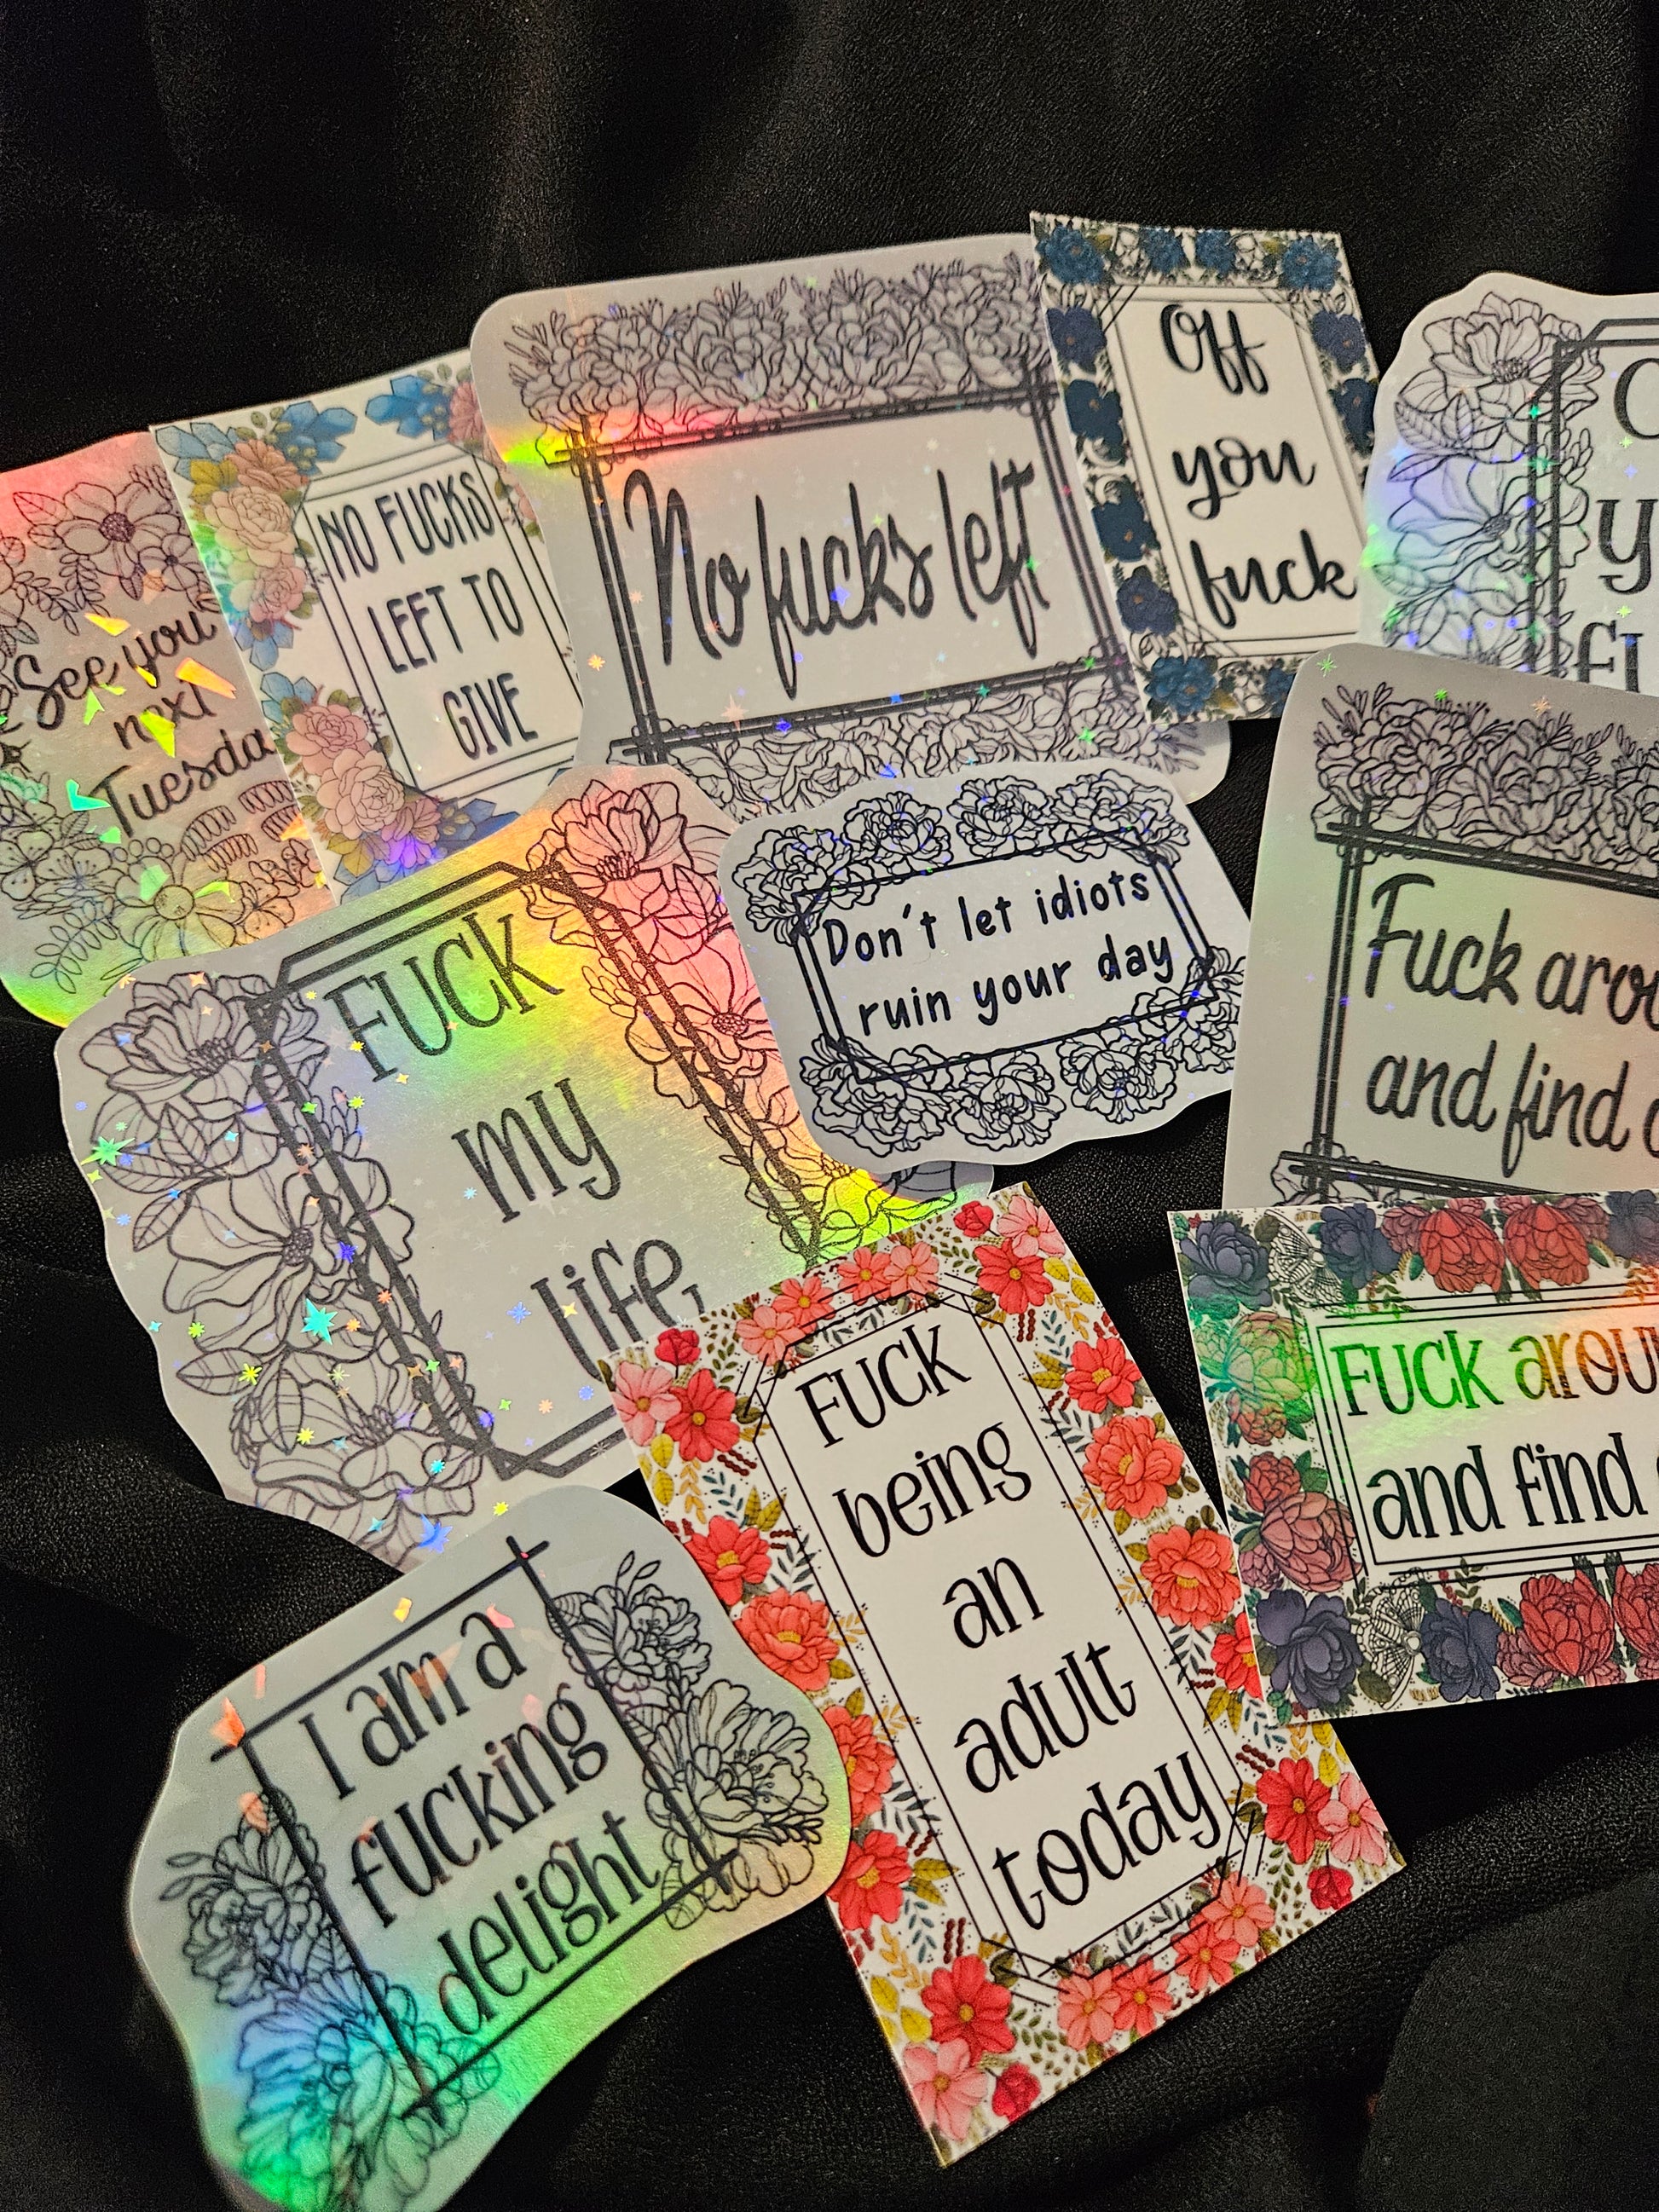 See you
next
Tuesday
NO FUCKS
LEFT TO
GIVE
No fucks left
Off
you
fuck
Don't let idiots
ruin your day
Fuck
and find
FUCK
my
life
FUCK
being
an
adult
today
FUCK
and find
I am a
fucking
delight